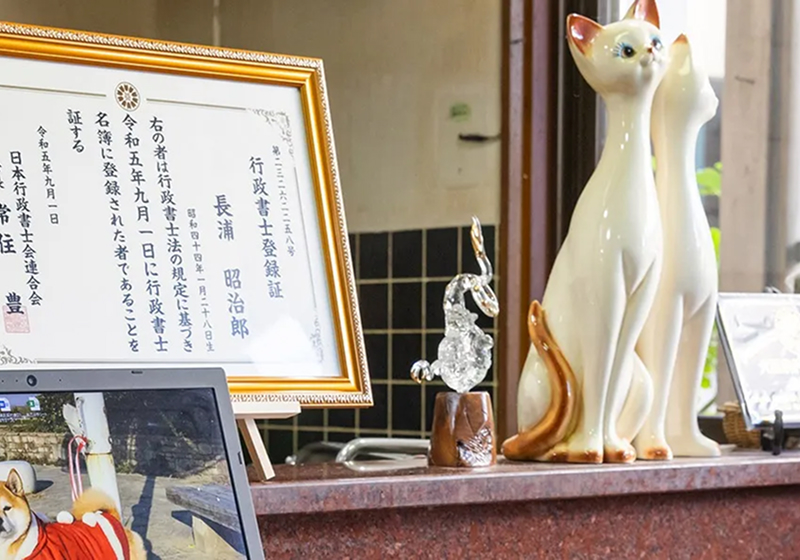 第二三二六二二五八号
行政書士登録証
長浦 昭治郎
昭和四十四年一月二十八日生
右の者は行政書士法の規定に基づき
令和五年九月一日に行政書士
名簿に登録された者であることを
証する
令和五年九月一日
日本行政書士会連合会
常住 豊